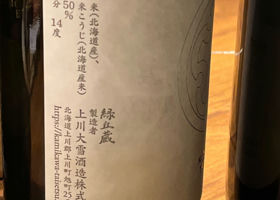 米(北海道産)、
米こうじ(北海道産米)
50%
分 14度
緑丘蔵
製造者
上川大雪酒造株式
北海道上川郡上川町旭町25
https://kamikawa-taisetsu